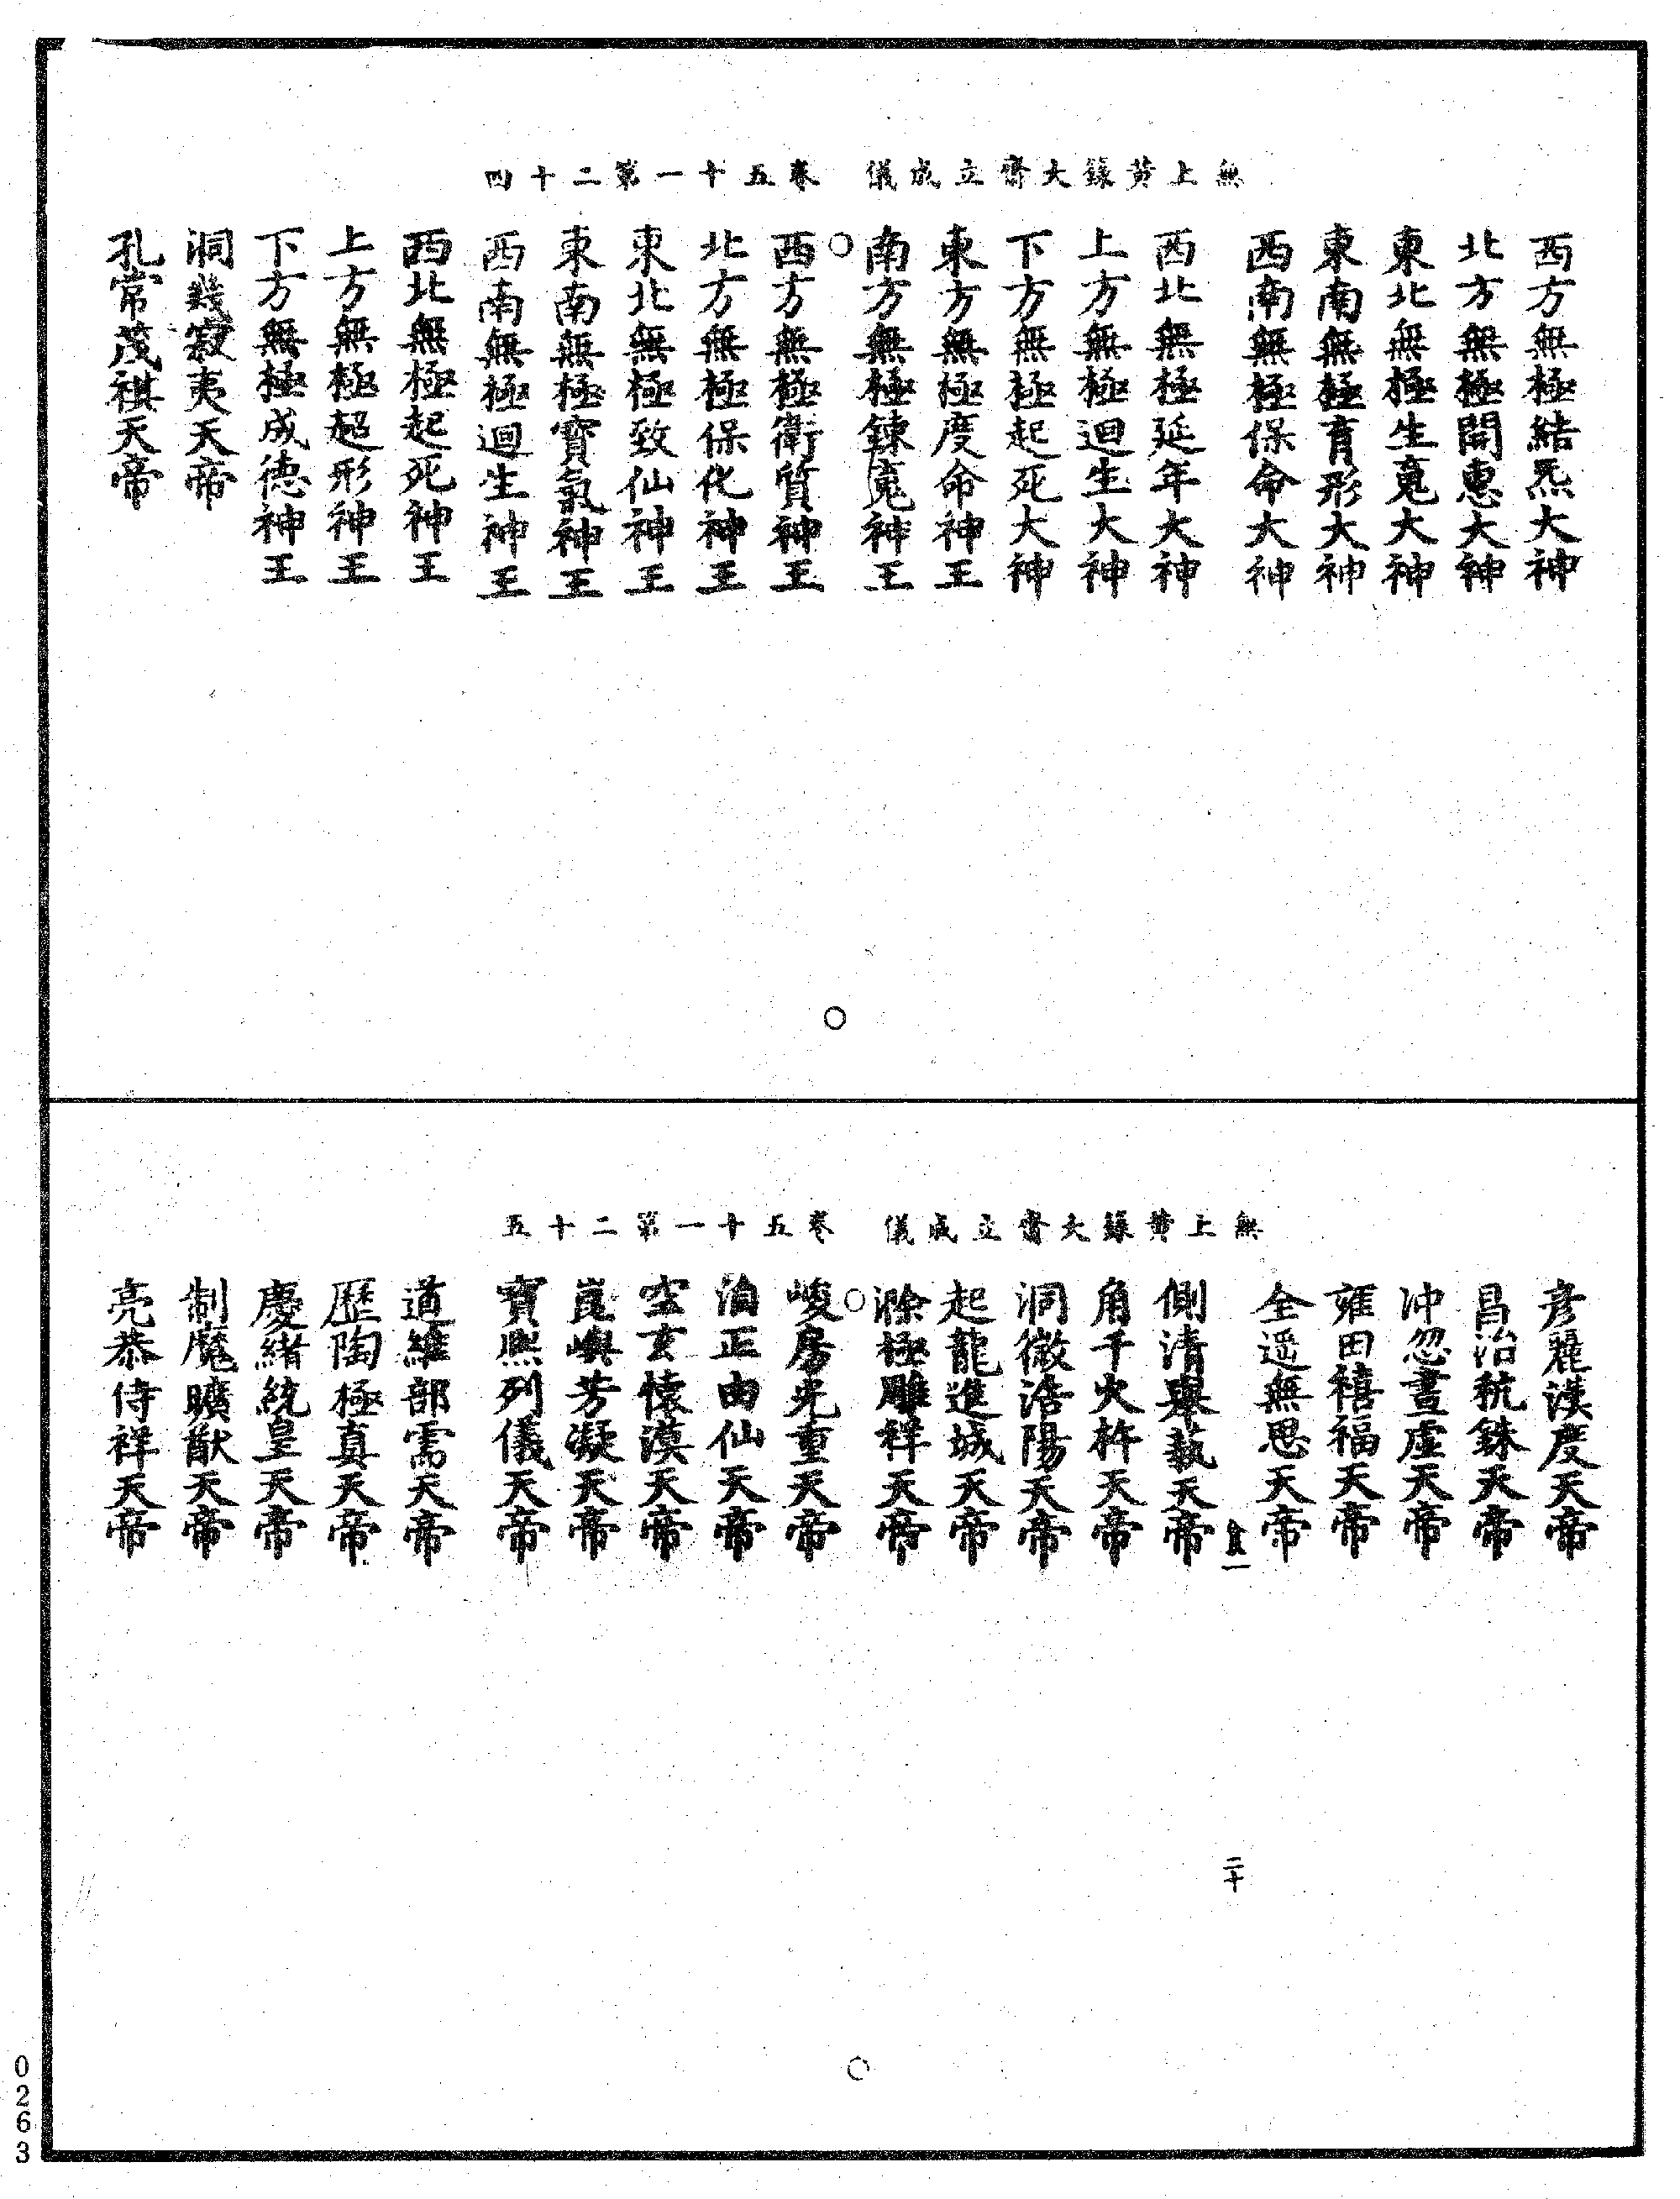 無上黃籙大齋立成儀　卷五十一第二十四
西方無極結炁大神
北方無極開惠大神
東北無極生䰟大神
東南無極育形大神
西南無極保命大神
西北無極延年大神
上方無極迴生大神
下方無極起死大神
東方無極度命神王
南方無極鍊䰟神王
西方無極衛質神王
北方無極保化神王
東北無極致仙神王
東南無極寶氣神王
西南無極迴生神王
西北無極起死神王
上方無極超形神王
下方無極成德神王
洞幾寂夷天帝
孔常茂祺天帝
無上黃籙大齋立成儀　卷五十一第二十五
彥麗漢度天帝
昌治秔銖天帝
冲忽晝虛天帝
雍田禧福天帝
全遥無思天帝
二十
側清舉藝天帝
角千火杵天帝
洞微浩陽天帝
起龍進城天帝
滁極雕祥天帝
峻房光重天帝
正由仙天帝
空玄懷漠天帝
崑嶼芳凝天帝
寶熈列儀天帝
道維部需天帝
歷陶極真天帝
慶緒統皇天帝
制魔曠猷天帝
亮恭侍祥天帝
0263